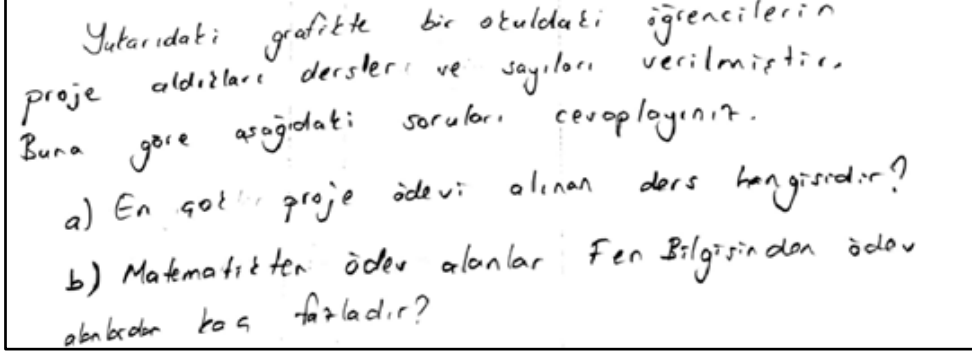 Yukarıdaki grafikte bir okuldaki öğrencilerin
proje aldıkları dersleri ve sayıları verilmiştir.
Buna göre aşağıdaki soruları cevaplayınız.
a) En çok proje ödevi alınan ders hangisidir?
b) Matematikten ödev alanlar Fen Bilgisinden ödev
alanlardan kaç fazladır?